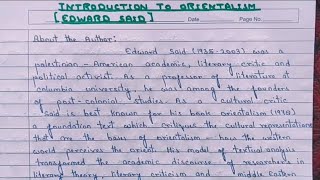 INTRODUCTION TO ORIENTALISM
[EDWARD SAID]
Date
Page No
About the Author:
Edward Said (1935-2003) was a
palestinian-American academic, literary critic and
political activist. As a professor of literature at
columbia university, he was among the founders
of post-colonial studies. As a cultural critic
said is best known for his book orientalism (1978)
a foundation text which critiques the cultural representations
that are the bases of orientalism - how the western
world perceives the orient. His model of textual analysis
transformed the academic discourse of researchers in
literary theory, literary criticism and middle Eastern